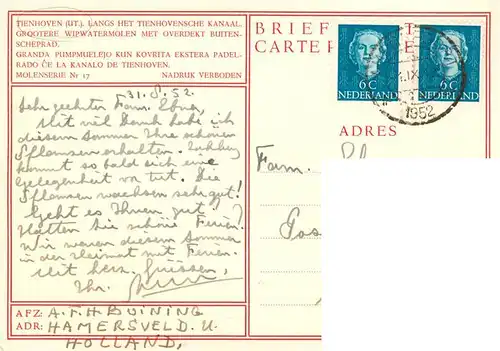 TIENHOVEN (UT.). LANGS HET TIENHOVENSCHE KANAAL.
GROOTERE WIPWATERMOLEN MET OVERDEKT BUITEN-
SCHEPRAD.
GRANDA PUMPMUELEJO KUN KOVRITA EKSTERA PADEL-
RADO ĈE LA KANALO DE TIENHOVEN.
MOLENSERIE Nr 17 NADRUK VERBODEN
31.8.52.
Sehr geehrter Fam.
Mit viel Dank habe ich
diesem Sommer Ihre schönen
Pflanzen erhalten.
kommt so bald sich eine
Gelegenheit vor tut. Die
Pflanzen wachsen sehr gut!
Geht es Ihnen gut?
Hatten Sie schöne Ferien.
Wir waren diesem Sommer
in der Heimat mit Ferien.
Mit herz. Grüssen,
Ihr.
AFZ: A.F.H BUINING
ADR: HAMERSVELD. U.
HOLLAND.
BRIEF
CARTE P
T
E
6C
NEDERLAND
6C
NEDERLAND
IX
1952
ADRES
Fam.